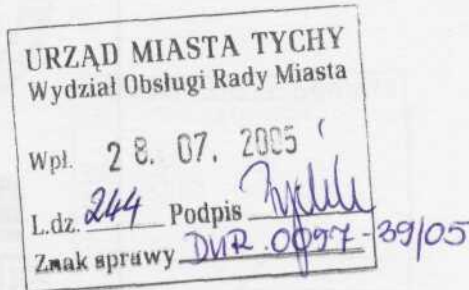 URZĄD MIASTA TYCHY
Wydział Obsługi Rady Miasta
Wpł. 28. 07. 2005
L.dz. 244 Podpis
Znak sprawy DUR.0097-39/05